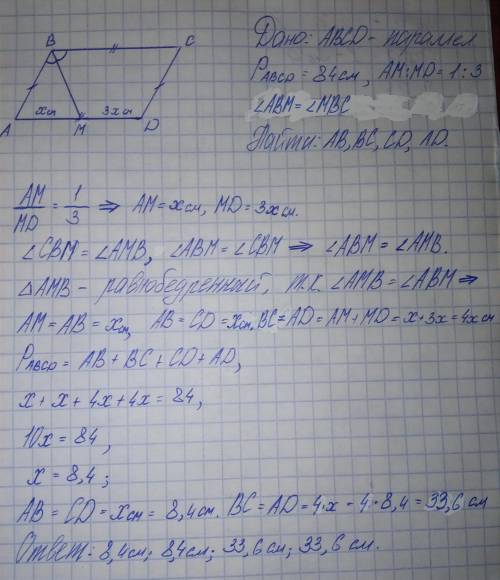 B
C
A
xсм
M
3xсм
D
Дано: ABCD - паралел
PABCD = 84см, AM:MD = 1:3
∠ABM = ∠MBC
Найти: AB, BC, CD, AD.
AM/MD = 1/3 ⇒ AM = xсм, MD = 3xсм.
∠CBM = ∠AMB, ∠ABM = ∠CBM ⇒ ∠ABM = ∠AMB.
△AMB - равнобедренный, т.к ∠AMB = ∠ABM ⇒
AM = AB = xсм, AB = CD = xсм. BC = AD = AM + MD = x + 3x = 4xсм
PABCD = AB + BC + CD + AD,
x + x + 4x + 4x = 84,
10x = 84,
x = 8,4;
AB = CD = xсм = 8,4см. BC = AD = 4·x = 4·8,4 = 33,6 см
Ответ: 8,4см; 8,4см; 33,6 см; 33,6 см.